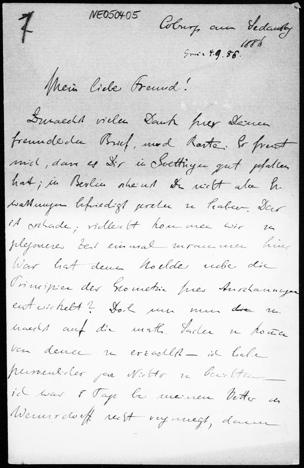 7
NE050405
Coburg am Sedanstag
1886
2.9.86.
Mein liebe Freund!
Zunaechst vielen Dank fuer Deinen
freundlichen Brief, und Karte. Es freut
mich, dass es Dir in Goettingen gut gefallen
hat; in Berlin scheinst Du nicht alle Er
wartungen befriedigt zu haben. Das
ist schade; vielleicht kommen wir zu
gelegener Zeit einmal zusammen hier
War hat denn ueber die
Principien der Geometrie fuer Anschauungen
entwickelt? Doch um nun zu
naechst auf die math Sachen zu kommen
von denen zu erzaehlt — ich habe
persoenlicher gar Nichts zu berichten —
ich war 8 Tage bei meinem Vetter in
recht vergnuegt, dann